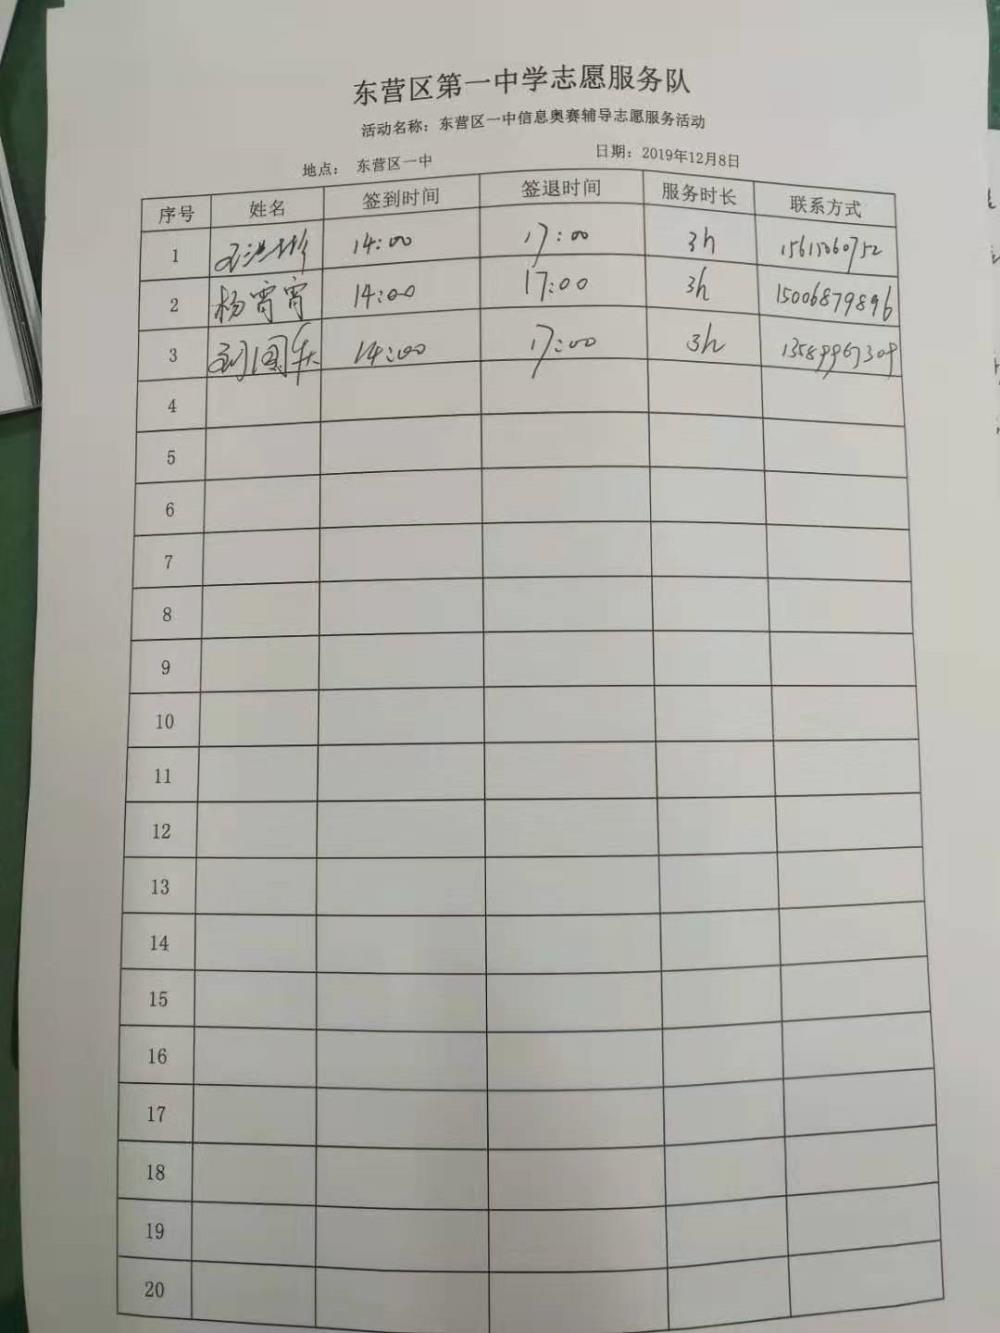 东营区第一中学志愿服务队
活动名称：东营区一中信息奥赛辅导志愿服务活动
地点： 东营区一中 日期：2019年12月8日
序号 姓名 签到时间 签退时间 服务时长 联系方式
1 14:00 17:00 3h
2 杨霄霄 14:00 17:00 3h 15006879896
3 刘国庆 14:00 17:00 3h
4
5
6
7
8
9
10
11
12
13
14
15
16
17
18
19
20